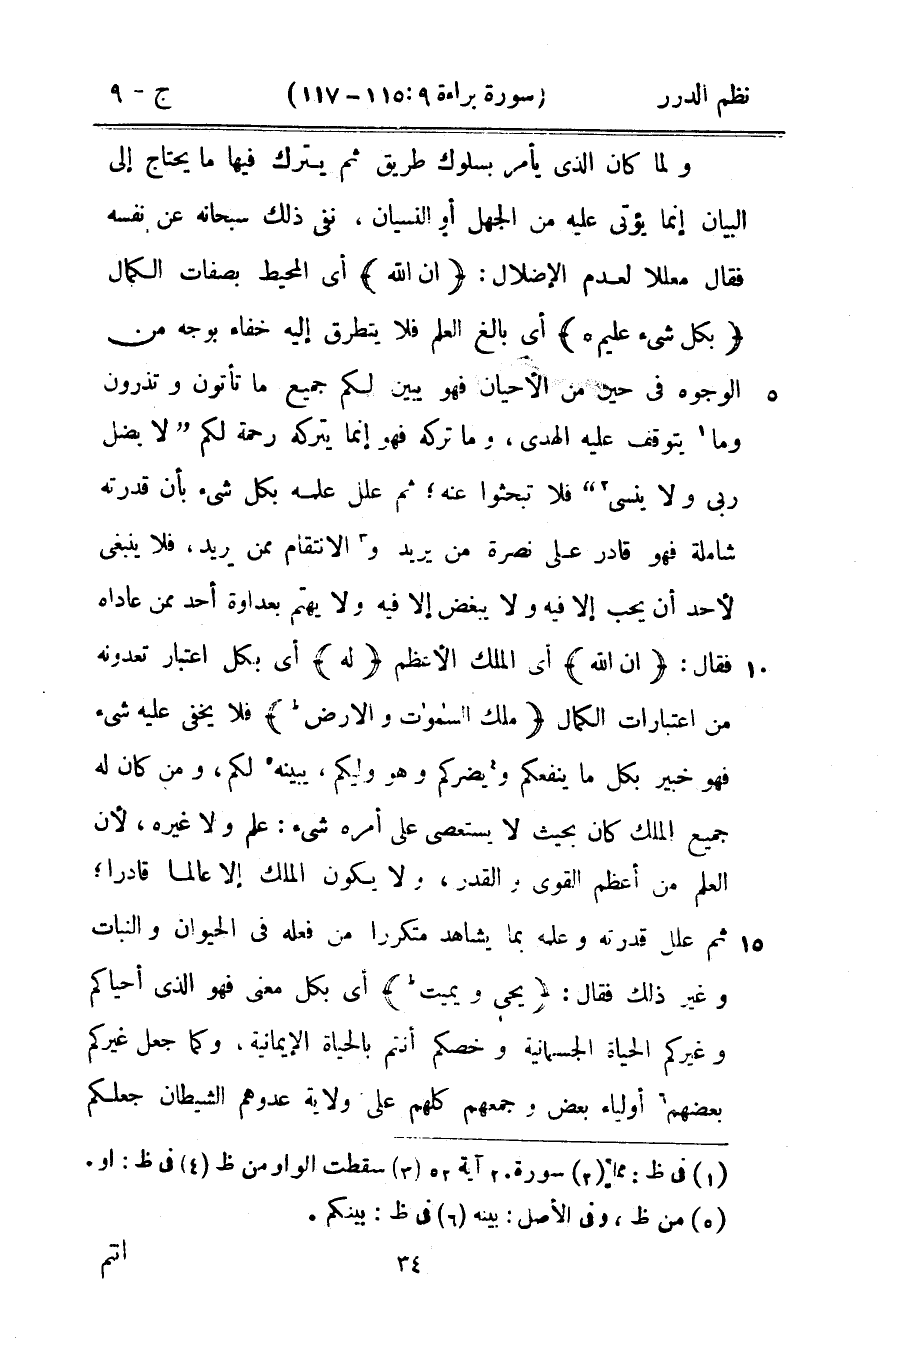 نظم الدرر (سورة براءة ٩ : ١١٥ – ١١٧) ج – ٩
و لما كان الذى يأمر بسلوك طريق ثم يترك فيها ما يحتاج إلى
البيان إنما يؤتى عليه من الجهل أو النسيان ، نفى ذلك سبحانه عن نفسه
فقال معللا لعدم الإضلال : ﴿ ان الله ﴾ أى المحيط بصفات الكمال
﴿ بكل شىء عليم ه ﴾ أى بالغ العلم فلا يتطرق إليه خفاء بوجه من
٥ الوجوه فى حين من الأحيان فهو يبين لكم جميع ما تأتون و تذرون
وما ١ يتوقف عليه الهدى ، و ما تركه فهو إنما يتركه رحمة لكم ” لا يضل
ربى و لا ينسى ٢ “ فلا تبحثوا عنه ؛ ثم علل علمه بكل شىء بأن قدرته
شاملة فهو قادر على نصرة من يريد و ٣ الانتقام ممن يريد ، فلا ينبغى
لأحد أن يحب إلا فيه و لا يبغض إلا فيه و لا يهتم بعداوة أحد ممن عاداه
١٠ فقال : ﴿ ان الله ﴾ أى الملك الأعظم ﴿ له ﴾ أى بكل اعتبار تعدونه
من اعتبارات الكمال ﴿ ملك السمٰوٰت و الارض ط ﴾ فلا يخفى عليه شىء
فهو خبير بكل ما ينفعكم و ٤ يضركم و هو وليكم ، يبينه ٥ لكم ، و من كان له
جميع الملك كان بحيث لا يستعصى على أمره شىء : علم و لا غيره ، لأن
العلم من أعظم القوى و القدر ، و لا يكون الملك إلا عالما قادرا ؛
١٥ ثم علل قدرته و علمه بما يشاهد متكررا من فعله فى الحيوان و النبات
و غير ذلك فقال : ﴿ يحى و يميت ط ﴾ أى بكل معنى فهو الذى أحياكم
و غيركم الحياة الجسمانية و خصكم أنتم بالحياة الإيمانية ، و كما جعل غيركم
بعضهم ٦ أولياء بعض و جمعهم كلهم على ولاية عدوهم الشيطان جعلكم
(١) فى ظ : مما (٢) سورة ٢٠ آية ٥٢ (٣) سقطت الواو من ظ (٤) فى ظ : او .
(٥) من ظ ، وفى الأصل : بينه (٦) فى ظ : بينكم .
٣٤ انتم